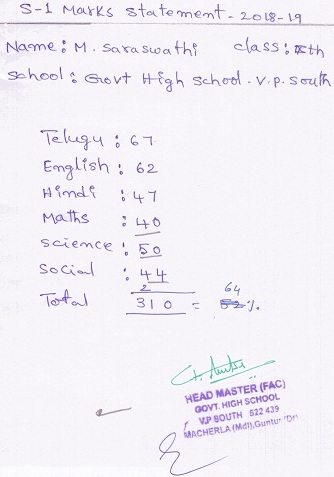 S-1 Marks statement - 2018-19
Name: M. Saraswathi class: xth
school: Govt High School - V.P. South
Telugu: 67
English: 62
Hindi: 47
Maths: 40
science: 50
social: 44
2
64
Total 310 = 52%.
HEAD MASTER (FAC)
GOVT. HIGH SCHOOL
V.P SOUTH 522 439
MACHERLA (Mdl), Guntur (Dt)